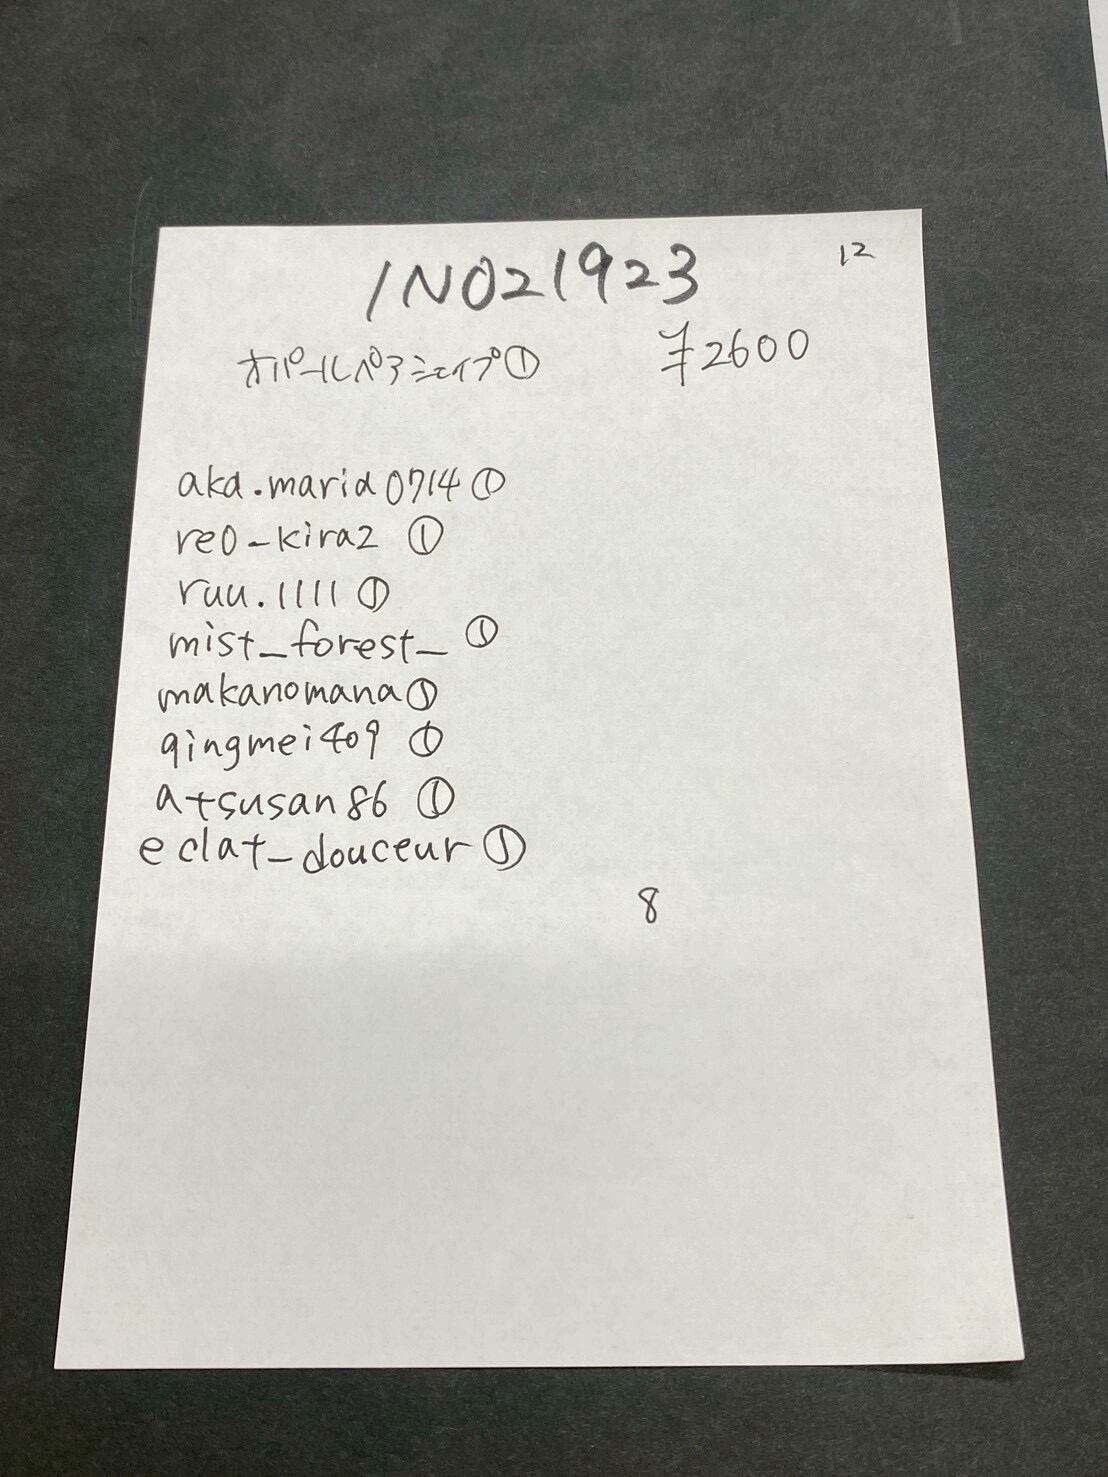 12
1NO21923
オパールペアシェイプ① ¥2600
aka.maria0714 ①
reo_kira2 ①
ruu.1111 ①
mist_forest_ ①
makanomana ①
qingmei409 ①
atsusan86 ①
eclat_douceur ①
8